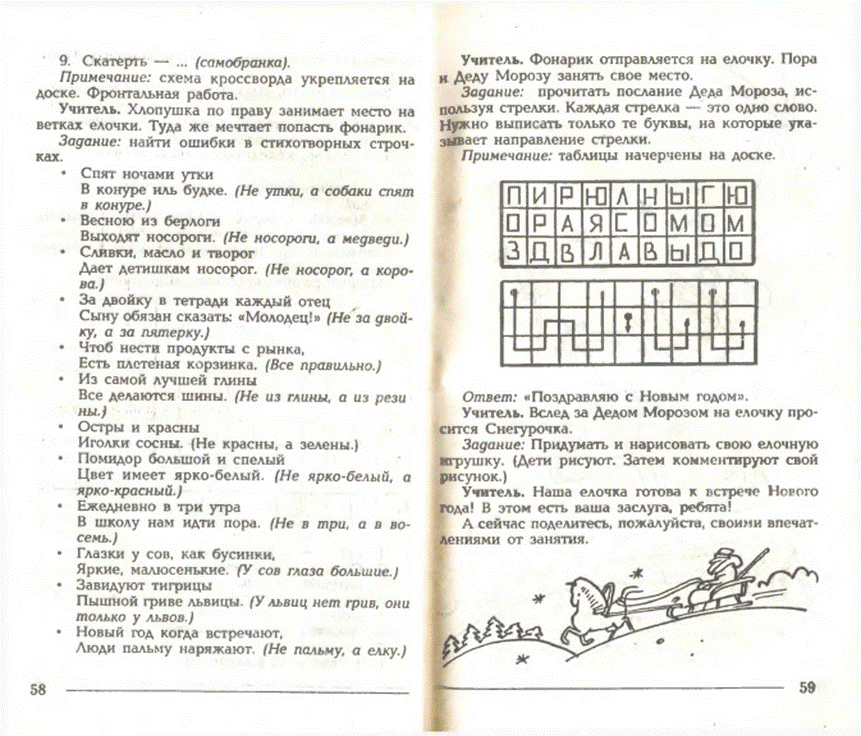 9. Скатерть — ... (самобранка).
Примечание: схема кроссворда укрепляется на
доске. Фронтальная работа.
Учитель. Хлопушка по праву занимает место на
ветках елочки. Туда же мечтает попасть фонарик.
Задание: найти ошибки в стихотворных строч-
ках.
• Спят ночами утки
В конуре иль будке. (Не утки, а собаки спят
в конуре.)
• Весною из берлоги
Выходят носороги. (Не носороги, а медведи.)
• Сливки, масло и творог
Дает детишкам носорог. (Не носорог, а коро-
ва.)
• За двойку в тетради каждый отец
Сыну обязан сказать: «Молодец!» (Не за двой-
ку, а за пятерку.)
• Чтоб нести продукты с рынка,
Есть плетеная корзинка. (Все правильно.)
• Из самой лучшей глины
Все делаются шины. (Не из глины, а из рези
ны.)
• Остры и красны
Иголки сосны. (Не красны, а зелены.)
• Помидор большой и спелый
Цвет имеет ярко-белый. (Не ярко-белый, а
ярко-красный.)
• Ежедневно в три утра
В школу нам идти пора. (Не в три, а в во-
семь.)
• Глазки у сов, как бусинки,
Яркие, малюсенькие. (У сов глаза большие.)
• Завидуют тигрицы
Пышной гриве львицы. (У львиц нет грив, они
только у львов.)
• Новый год когда встречают,
Люди пальму наряжают. (Не пальму, а елку.)
58
Учитель. Фонарик отправляется на елочку. Пора
и Деду Морозу занять свое место.
Задание: прочитать послание Деда Мороза, ис-
пользуя стрелки. Каждая стрелка — это одно слово.
Нужно выписать только те буквы, на которые ука-
зывает направление стрелки.
Примечание: таблицы начерчены на доске.
П И Р Ю Л Н Ы Г Ю
О Р А Я С О М О М
З Д В Л А В Ы Д О
Ответ: «Поздравляю с Новым годом».
Учитель. Вслед за Дедом Морозом на елочку про-
сится Снегурочка.
Задание: Придумать и нарисовать свою елочную
игрушку. (Дети рисуют. Затем комментируют свой
рисунок.)
Учитель. Наша елочка готова к встрече Нового
года! В этом есть ваша заслуга, ребята!
А сейчас поделитесь, пожалуйста, своими впечат-
лениями от занятия.
59